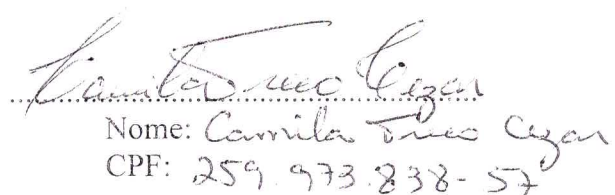 Camila Trico Cezar
Nome: Camila Trico Cezar
CPF: 259.973.838-57